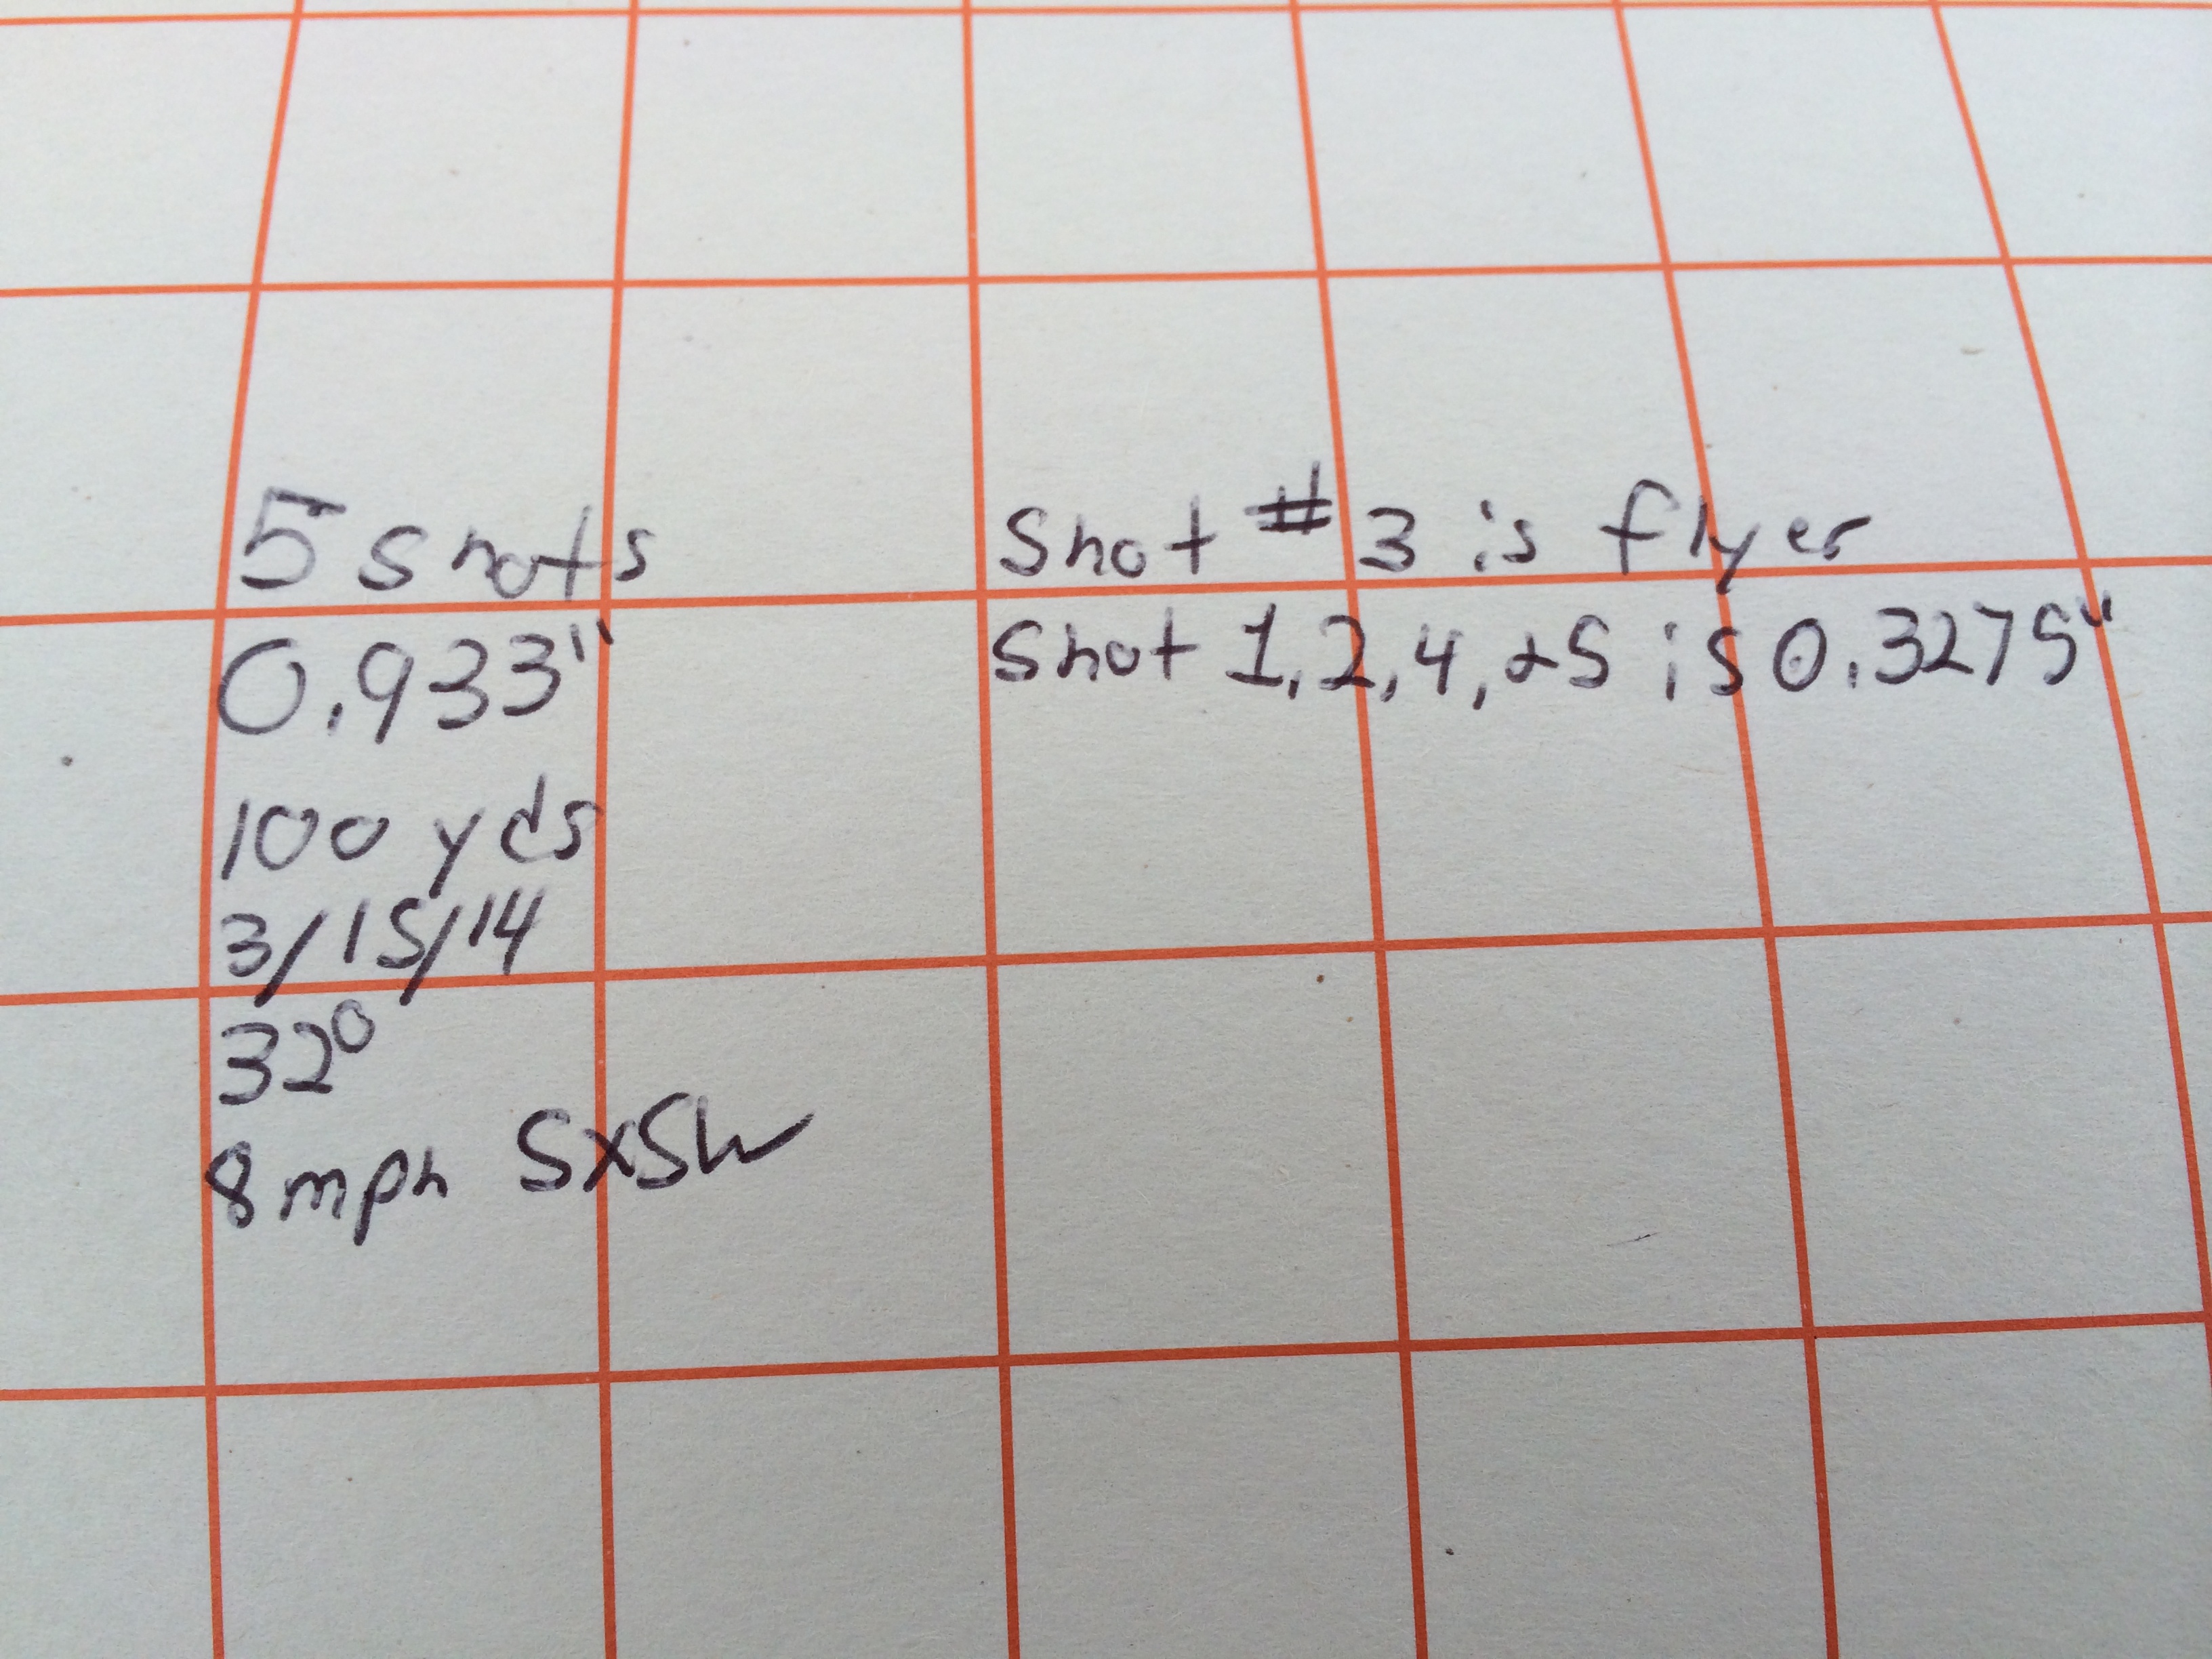 5 shots
0.933"
100 yds
3/15/14
32°
8mph SxSW
Shot #3 is flyer
Shot 1,2,4,&5 is 0.3275"